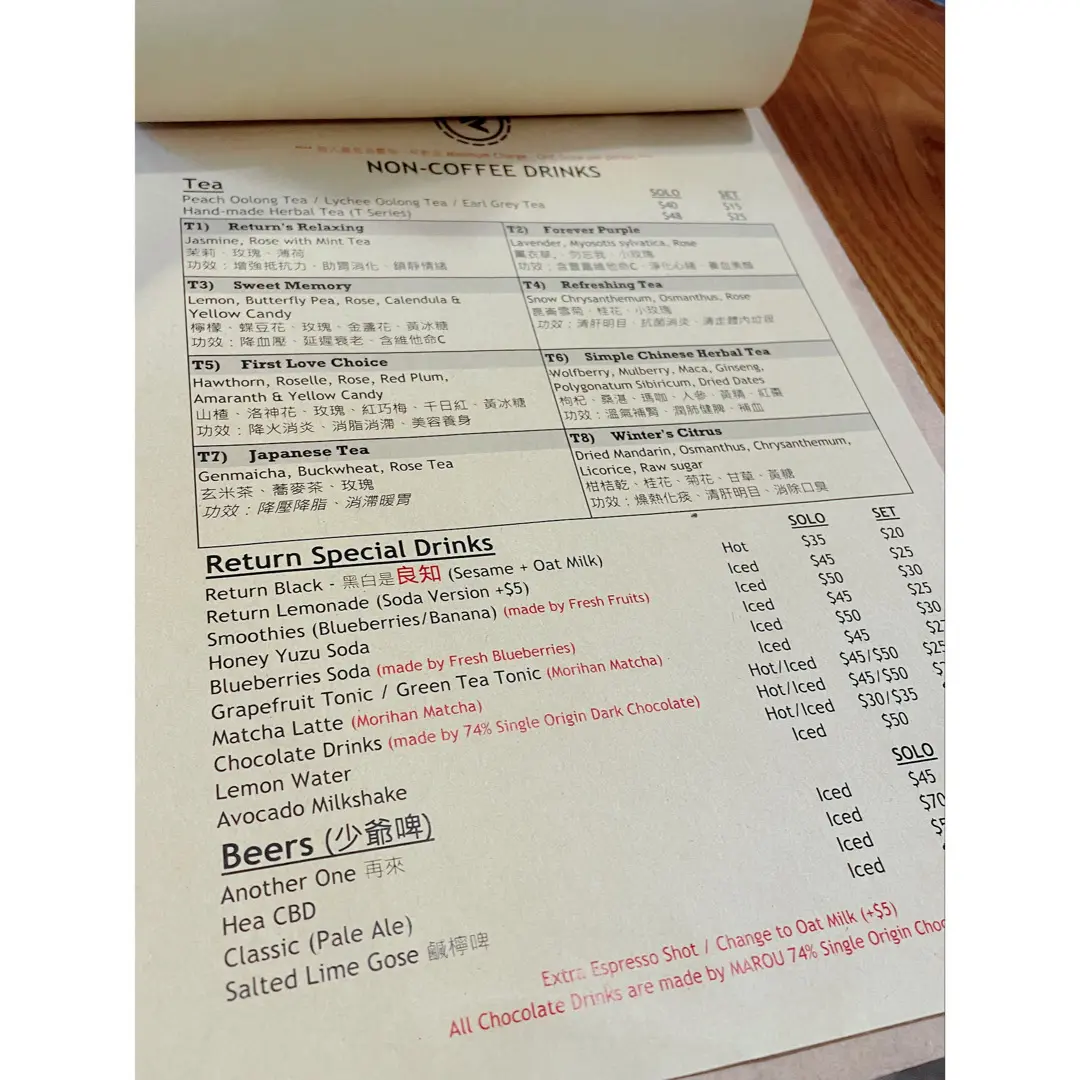 NON-COFFEE DRINKS
Tea SOLO SET
Peach Oolong Tea / Lychee Oolong Tea / Earl Grey Tea $40 $15
Hand-made Herbal Tea (T Series) $48 $25
T1) Return's Relaxing
Jasmine, Rose with Mint Tea
茉莉、玫瑰、薄荷
功效：增強抵抗力、助胃消化、鎮靜情緒
T2) Forever Purple
Lavender, Myosotis sylvatica, Rose
薰衣草、勿忘我、小玫瑰
功效：含豐富維他命C、淨化心緒
T3) Sweet Memory
Lemon, Butterfly Pea, Rose, Calendula &
Yellow Candy
檸檬、蝶豆花、玫瑰、金盞花、黃冰糖
功效：降血壓、延遲衰老、含維他命C
T4) Refreshing Tea
Snow Chrysanthemum, Osmanthus, Rose
崑崙雪菊、桂花、小玫瑰
功效：清肝明目、抗菌消炎、清走體內垃圾
T5) First Love Choice
Hawthorn, Roselle, Rose, Red Plum,
Amaranth & Yellow Candy
山楂、洛神花、玫瑰、紅巧梅、千日紅、黃冰糖
功效：降火消炎、消脂消滯、美容養身
T6) Simple Chinese Herbal Tea
Wolfberry, Mulberry, Maca, Ginseng,
Polygonatum Sibiricum, Dried Dates
枸杞、桑湛、瑪咖、人參、黃精、紅棗
功效：溫氣補腎、潤肺健脾、補血
T7) Japanese Tea
Genmaicha, Buckwheat, Rose Tea
玄米茶、蕎麥茶、玫瑰
功效：降壓降脂、消滯暖胃
T8) Winter's Citrus
Dried Mandarin, Osmanthus, Chrysanthemum,
Licorice, Raw sugar
柑桔乾、桂花、菊花、甘草、黃糖
功效：燥熱化痰、清肝明目、消除口臭
Return Special Drinks SOLO SET
Return Black - 黑白是良知 (Sesame + Oat Milk) Hot $35 $20
Return Lemonade (Soda Version +$5) Iced $45 $25
Smoothies (Blueberries/Banana) (made by Fresh Fruits) Iced $50 $30
Honey Yuzu Soda Iced $45 $25
Blueberries Soda (made by Fresh Blueberries) Iced $50 $30
Grapefruit Tonic / Green Tea Tonic (Morihan Matcha) Iced $45
Matcha Latte (Morihan Matcha) Hot/Iced $45/$50
Chocolate Drinks (made by 74% Single Origin Dark Chocolate) Hot/Iced $45/$50
Lemon Water Hot/Iced $30/$35
Avocado Milkshake Iced $50
Beers (少爺啤) SOLO
Another One 再來 Iced $45
Hea CBD Iced $70
Classic (Pale Ale) Iced
Salted Lime Gose 鹹檸啤 Iced
Extra Espresso Shot / Change to Oat Milk (+$5)
All Chocolate Drinks are made by MAROU 74% Single Origin Choc